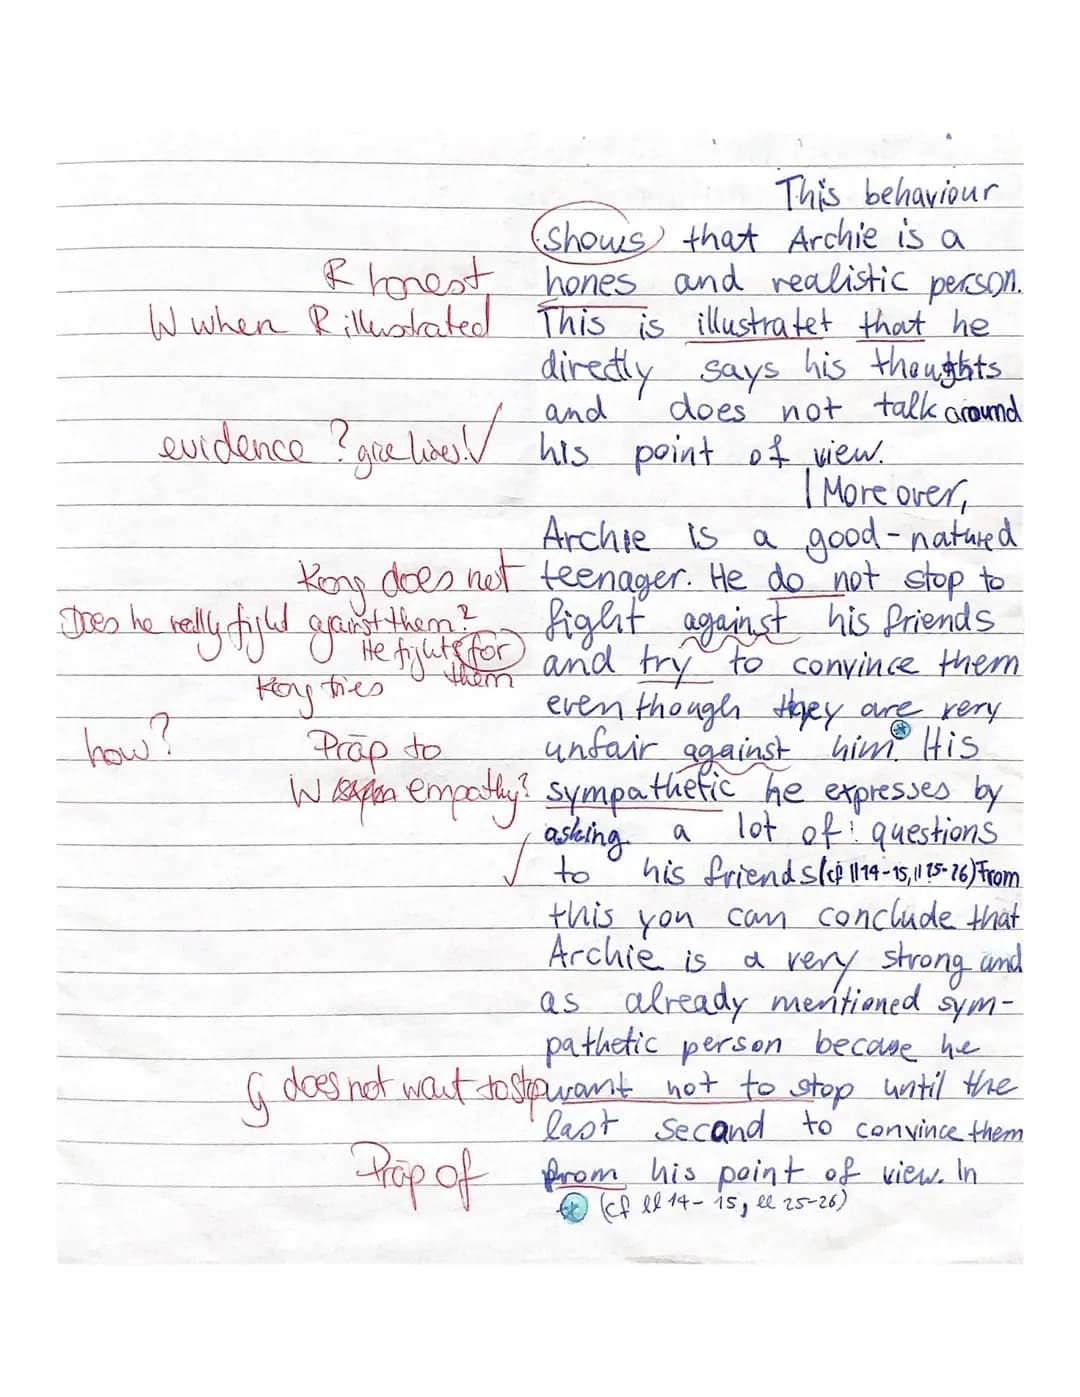 This behaviour
shows that Archie is a
R honest hones and realistic person.
W when R illustrated This is illustratet that he
directly says his thoughts
and does not talk around
evidence? give lines! √ his point of view.
| Moreover,
Archie is a good-natured
Kong does not teenager. He do not stop to
Does he really fight against them? fight against his friends
He fights for them and try to convince them
Kong tries even though they are very
how? Präp to unfair against him. * His
W empathy? sympathetic he expresses by
asking a lot of questions
√ to his friends (cf ll 14-15, ll 25-26) From
this you can conclude that
Archie is a very strong and
as already mentioned sym-
pathetic person becaue he
G does not want to stop want not to stop until the
last second to convince them
Präp of from his point of view. In
* (cf ll 14-15, ll 25-26)